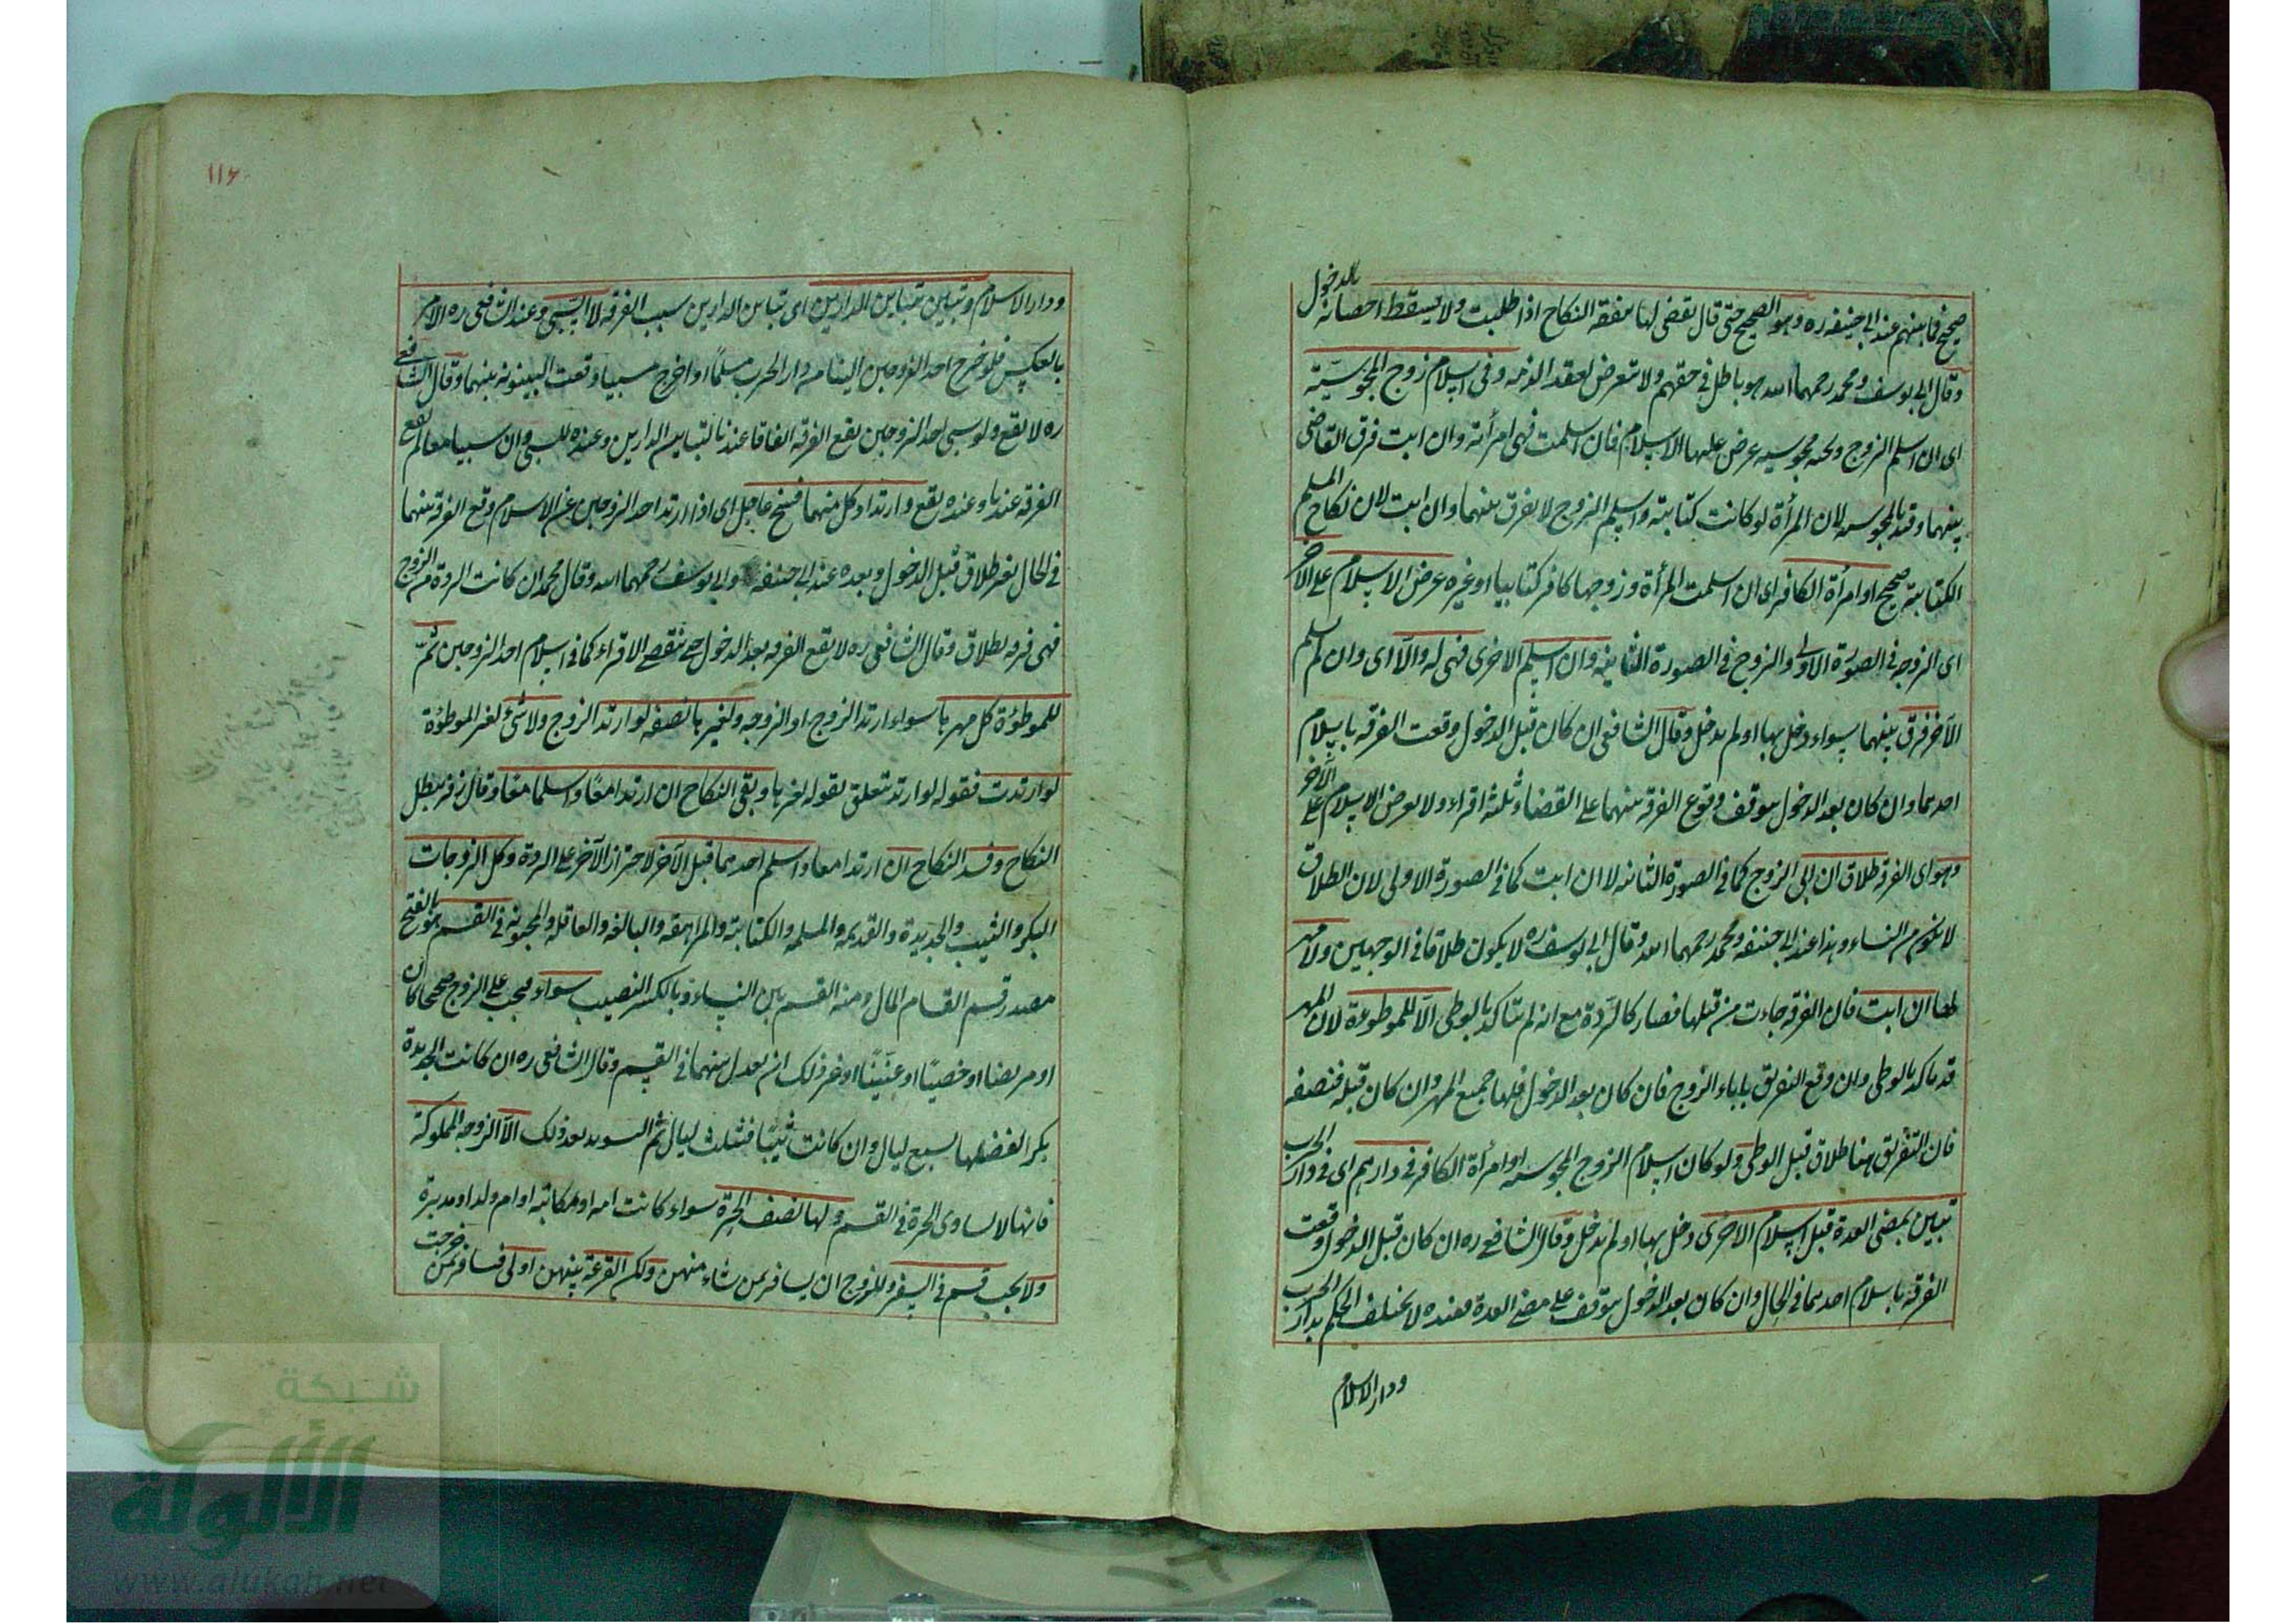 صحيح فيما بينهم عند ابي حنيفه ره وهو الصحيح حتى قال يقضى لها بنفقة النكاح اذا طلبت ولا يسقط احصانه بالدخول
وقال ابي يوسف ومحمد رحمهما الله هو باطل في حقهم ولا نتعرض لعقد الذمه وفي اسلام زوج المجوسيّة
اى ان اسلم الزوج وتحته مجوسيه عرض عليها الاسلام فان اسلمت فهى امرأته وان ابت فرق القاضى
بينهما وقيد بالمجوسيه لان المرأة لو كانت كتابيّة واسلم الزوج لا يفرق بينهما وان ابت لان نكاح المسلم
الكتابية صحيح او امرأة الكافر اى ان اسلمت المرأة وزوجها كافر كتابيا او غيره عرض الاسلام على الآخر
اى الزوجه في الصورة الاولى والزوج في الصورة الثانيه وان اسلم الاخرى فهى له والّا اى وان لم يسلم
الآخر فرق بينهما سواء دخل بها او لم يدخل وقال الشافعى ان كان قبل الدخول وقعت الفرقه باسلام
احدهما وان كان بعد الدخول يتوقف وقوع الفرقه بينهما على انقضاء ثلثة اقراء ولا يعرض الاسلام على الآخر
وهو اى الفرقه طلاق ان ابى الزوج كما في الصورة الثانيه لا ان ابت كما في الصورة الاولى لان الطلاق
لا يكون من النساء وهذا عند ابي حنيفه ومحمد رحمهما الله وقال ابي يوسف ره لا يكون طلاقا في الوجهين ولا مهر
لها ان ابت فان الفرقه جاءت من قبلها فصار كالردّة مع انه لم يتاكد بالوطى الّا للموطوءة لان المهر
قد تاكد بالوطى وان وقع التفريق باباء الزوج فان كان بعد الدخول فلها جميع المهر وان كان قبله فنصفه
فان التفريق هنا طلاق قبل الوطى ولو كان اسلام الزوج المجوسيه او امرأة الكافر في دارهم اى في دار الحرب
تبين بمضى العدة قبل اسلام الاخرى دخل بها او لم يدخل وقال الشافعى ره ان كان قبل الدخول وقعت
الفرقة باسلام احدهما في الحال وان كان بعد الدخول يتوقف على مضى العدة فعنده لا يختلف الحكم بدار الحرب
ودار الاسلام
١١٦
ودار الاسلام وتبين بتباين الدارين اى تباين الدارين سبب الفرقه لا السّبى وعند الشافعى ره الامر
بالعكس فلو خرج احد الزوجين الينا من دار الحرب مسلمًا او اخرج مسبيا وقعت البينونه بينهما وقال الشافعى
ره لا يقع ولو سبى احد الزوجين يقع الفرقه اتفاقا عندنا لتباين الدارين وعنده للسبى وان سبيا معا لم يقع
الفرقه عندنا وعنده يقع وارتداد كل منهما فسخ عاجل اى اذا ارتد احد الزوجين عن الاسلام وقع الفرقه بينهما
في الحال بغير طلاق قبل الدخول وبعده عند ابي حنيفه وابي يوسف رحمهما الله وقال محمد ان كانت الردة من الزوج
فهى فرقه بطلاق وقال الشافعى ره لا يقع الفرقه بعد الدخول حتى تنقضى الاقراء كما في اسلام احد الزوجين ثمّ
للموطوءة كل مهرها سواء ارتد الزوج او الزوجه ولغيرها نصفه لو ارتد الزوج ولا شئ لغير الموطوءة
لو ارتدت فقوله لو ارتد متعلق بقوله لغيرها وبقى النكاح ان ارتدا معًا واسلما معًا وقال زفر يبطل
النكاح وفسد النكاح ان ارتدا معا واسلم احدهما قبل الآخر لاحتراز الآخر على الردة وكل الزوجات
البكر والثيب والجديدة والقديمه والمسلمه والكتابيه والمراهقه والبالغه والعاقله والمجنونه في القسم هو بالفتح
مصدر قسم القسام المال ومنه القسم بين النساء وبالكسر النصيب سواء فيجب على الزوج صحيحا كان
او مريضا او خصيّا او عنّينًا او غير ذلك ان يعدل بينهما في القسم وقال الشافعى ره ان كانت الجديدة
بكرا يفضلها بسبع ليال وان كانت ثيّبًا فبثلث ليال ثم التسويه بعد ذلك الّا الزوجه المملوكة
فانها لا تساوى الحرة في القسم ولها نصف الحرّة سواء كانت امه او مكاتبه او ام ولد او مدبرة
ولا يجب قسم في السفر وللزوج ان يسافر بمن شاء منهن ولكن القرعة بينهن اولى فسافر بمن خرجت
شبكة
الألوكة
www.alukah.net